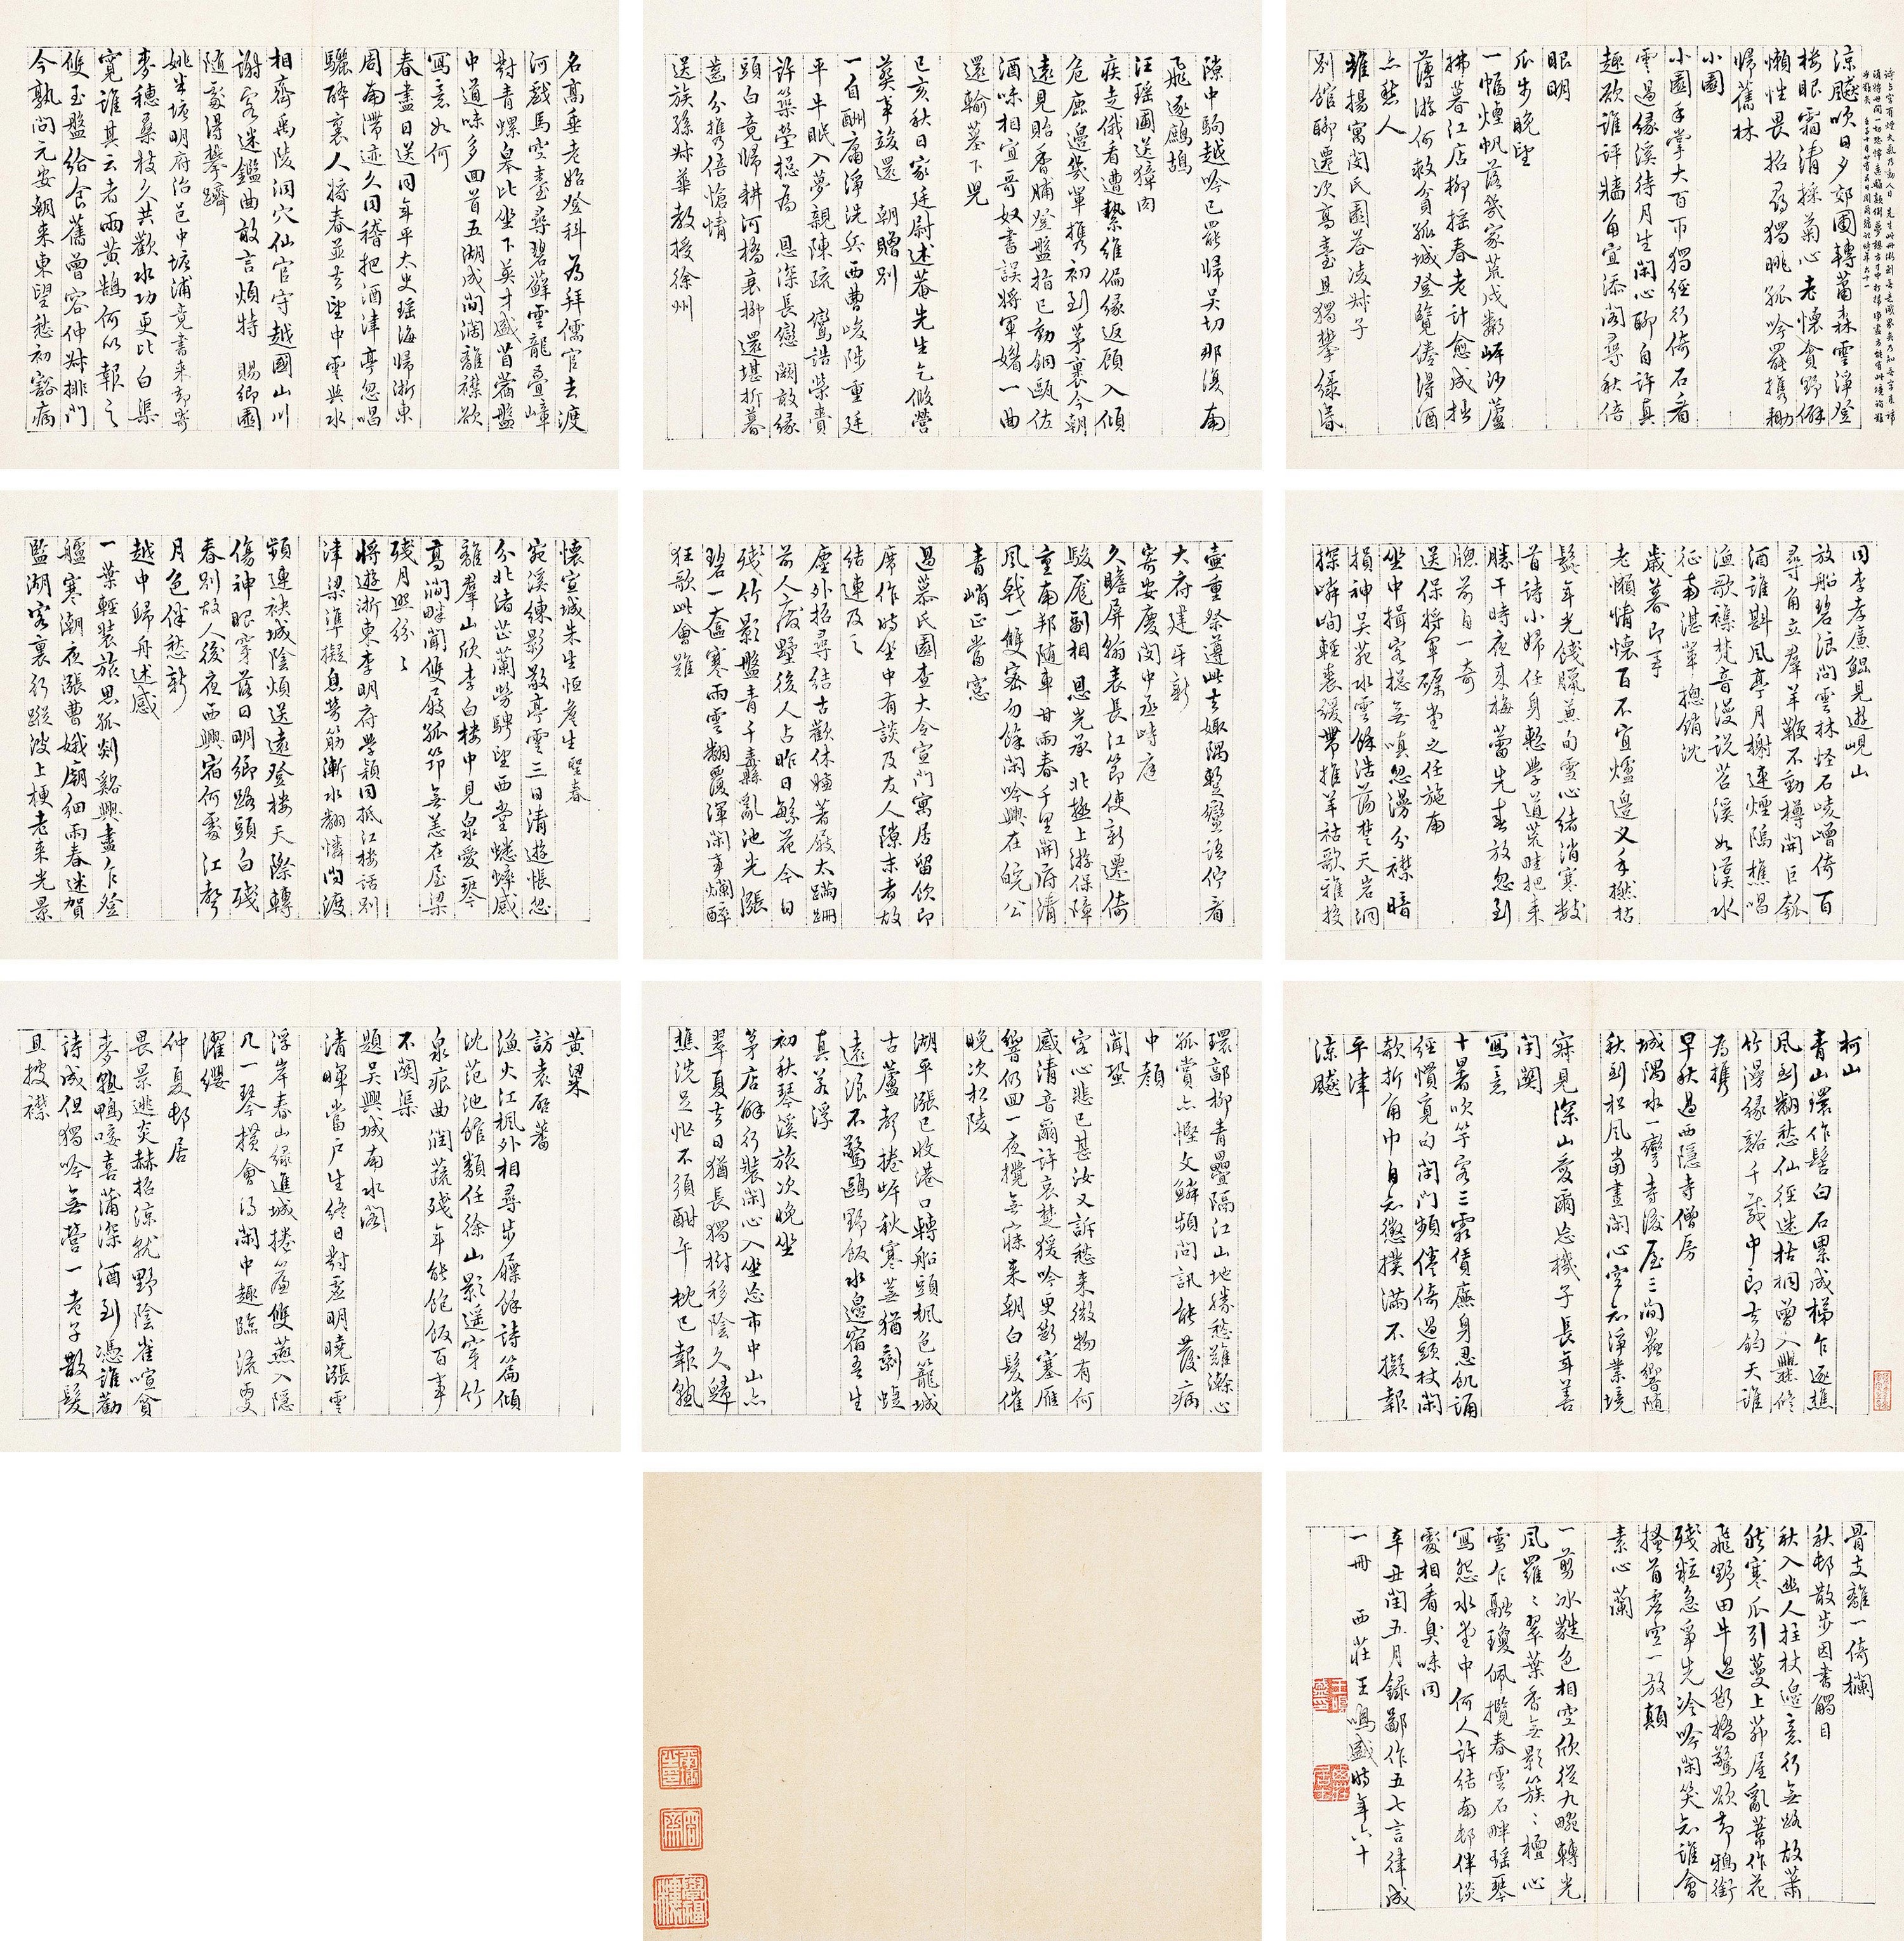 涼飈吹日夕郊圃轉蕭森雲淨登
樓眼霜清採菊心老懷貪野僻
懶性畏招尋獨眺孤吟罷携鋤
歸舊林
小園
小園手掌大百帀獨經行倚石看
雲過緣溪待月生閑心聊自許真
趣欲誰評牆角宜添閣尋秋倍
眼明
瓜步晚望
一幅煙帆落幾家荒戍鄰岸沙蘆
拂暮江店柳搖春老計愈成拙
薄游何救貧孤城登覽倦得酒
亦愁人
維揚寓閔氏園答凌叔子
別館聊遷次高臺且獨攀緑陰
隙中駒越吟已罷歸吳切那復南
飛逐鷓鴣
汪瑤圃送獐肉
疾走俄看遭縶維偏緣返顧入傾
危鹿邊幾輩携初到茅裹今朝
遠見貽香脯登盤指已動銅甌佐
酒味相宜哥奴書誤將軍媚一曲
還輸墓下兒
己亥秋日家廷尉述菴先生乞假營
葬事竣還 朝贈別
一自酬庸淨洗兵西曹峻陟重廷
平牛眠入夢親陳疏鸞誥榮賁
許築塋総為 恩深長戀闕敢緣
頭白竟歸耕河橋衰柳還堪折暮
齒分携倍愴情
送族孫叔華教授徐州
名高垂老始登科為拜儒官去渡
河戲馬空臺尋碧蘚雲龍疊嶂
對青螺皋比坐下英才盛苜蓿盤
中道味多回首五湖成間濶離襟欲
寫意如何
春盡日送同年平太史瑤海歸浙東
周南滯迹久同稽把酒津亭忽唱
驪醉裏人將春並去望中雲與水
相齊禹陵洞穴仙官守越國山川
謝客迷鑑曲敢言煩特 賜鄉園
隨處得攀躋
姚坐塘明府治邑中塘浦竟書来却寄
麥穗桑枝久共歡水功更比白渠
寬誰其云者兩黃鵠何以報之
雙玉盤給食舊曾容仲叔排門
今孰問元安朝来東望愁初豁病
同李孝廉鯤見遊峴山
放船碧浪問雲林怪石崚嶒倚百
尋角立羣羊鞭不動樽開巨瓠
酒誰斟風亭月榭連煙隖樵唱
漁歌襍梵音漫説苕溪如漢水
征南湛輩總銷沈
歲暮即事
老懶情懷百不宜爐邊叉手撚枯
髭年光餞臘兼旬雪心緒消寒數
首詩小婦任身慙學道荒畦把耒
勝干時夜来梅蕾先春放忽到
牕前自一奇
送保將軍礪堂之任施南
坐中揖客総無嗔忽漫分襟暗
損神吳苑水雲餘浩蕩楚天岩洞
探嶙峋輕裘緩帶推羊祜歌雅投
壺重祭遵此去娵隅蠻語佇看
大府建牙新
寄安慶閔中丞峙庭
久瞻屏翰表長江節使新遷倚
駿厖副相恩光承北極上游保障
重南邦隨車甘雨春千里開府清
風戟一雙密勿餘閑吟興在皖公
青峭正當窻
過慕氏園查大令宣門寓居留飲即
席作時坐中有談及友人隙末者故
結連及之
塵外招尋結古歡休嫌著屐太蹣跚
前人廢墅後人占昨日繁花今日
殘竹影盤青千𦆑亂池光漲
碧一奩寒雨雲翻覆渾閑事爛醉
狂歌此會難
懷宣城朱生恒詹生望春
宛溪練影敬亭雲三日清遊悵忽
分北渚芷蘭勞騁望西堂蟋蟀感
離羣山欣李白樓中見泉愛琴
高澗畔聞雙屐孤笻無恙在屋梁
殘月照紛々
將遊浙東李明府學穎同抵江樓話別
津梁準擬息勞筋漸水翻憐問渡
頻連袂城陰煩送遠登樓天際轉
傷神眼穿落日明鄉路頭白殘
春別故人後夜西興宿何處江聲
月色伴愁新
越中歸舟述感
一葉輕裝旅思孤剡谿興盡乍登
艫寒潮夜漲曹娥廟細雨春迷賀
監湖客裏行蹤波上梗老来光景
柯山
青山環作髻白石累成梯乍逐樵
風到翻愁仙徑迷枯桐曾入爨修
竹漫緣谿千載中郎去鈞天誰
為攜
早秋過西隱寺僧房
城隅水一彎寺後屋三間蟲響隨
秋到松風當晝閑心空知淨業境
寂見深山愛爾忘機子長年善
閉關
寫意
十暑吹竽客三霜賃廡身忍飢誦
經慣覓句閉門頻倦倚過頭杖閑
欹折角巾自知憊撲滿不擬報
平津
涼飈
環鄣柳青疊隔江山地勝愁難滌心
孤賞亦慳文鱗頻問訊能發病
中顏
聞蛩
客心悲已甚汝又訴愁来微物有何
感清音爾許哀楚猨吟更斷塞雁
響仍回一夜攪無寐来朝白髮催
晚次松陵
湖平漲已收港口轉船頭楓色籠城
古蘆聲捲岸秋寒蕪猶剩蜨
遠浪不驚鷗野飯水邊宿吾生
真若浮
初秋琴溪旅次晚坐
茅店解行裝閑心入坐忘市中山亦
翠夏去日猶長獨樹移陰久歸
樵洗足忙不須酣午枕已報熟
黃粱
訪袁啟蕃
漁火江楓外相尋步屧餘詩篇傾
沈范池館類任徐山影遥穿竹
泉痕曲潤蔬殘年能飽飯百事
不關渠
題吳興城南水閣
清暉當戶生終日對虛明曉漲雲
浮岸春山緑進城捲簾雙燕入隱
几一琴橫會得閑中趣臨流更
濯纓
仲夏邨居
畏景逃炎赫招涼就野陰雀喧貧
麥孰鴨唼喜蒲深酒到憑誰勸
詩成但獨吟無營一老子散髮
且披襟
骨支離一倚欄
秋邨散步因書觸目
秋入幽人拄杖邊意行無路故蕭
然寒瓜引蔓上茆屋亂葉作花
飛野田牛過斷橋驚欲却鴉銜
殘粒急爭先冷吟閑笑知誰會
搔首虛空一放顛
素心蘭
一剪冰蕤色相空欣從九畹轉光
風羅々翠葉香無影簇々檀心
雪乍融瓊佩攬春雲石畔瑤琴
寫怨水堂中何人許結南邨伴淡
處相看臭味同
辛丑閏五月錄鄙作五七言律成
一冊 西莊王鳴盛時年六十